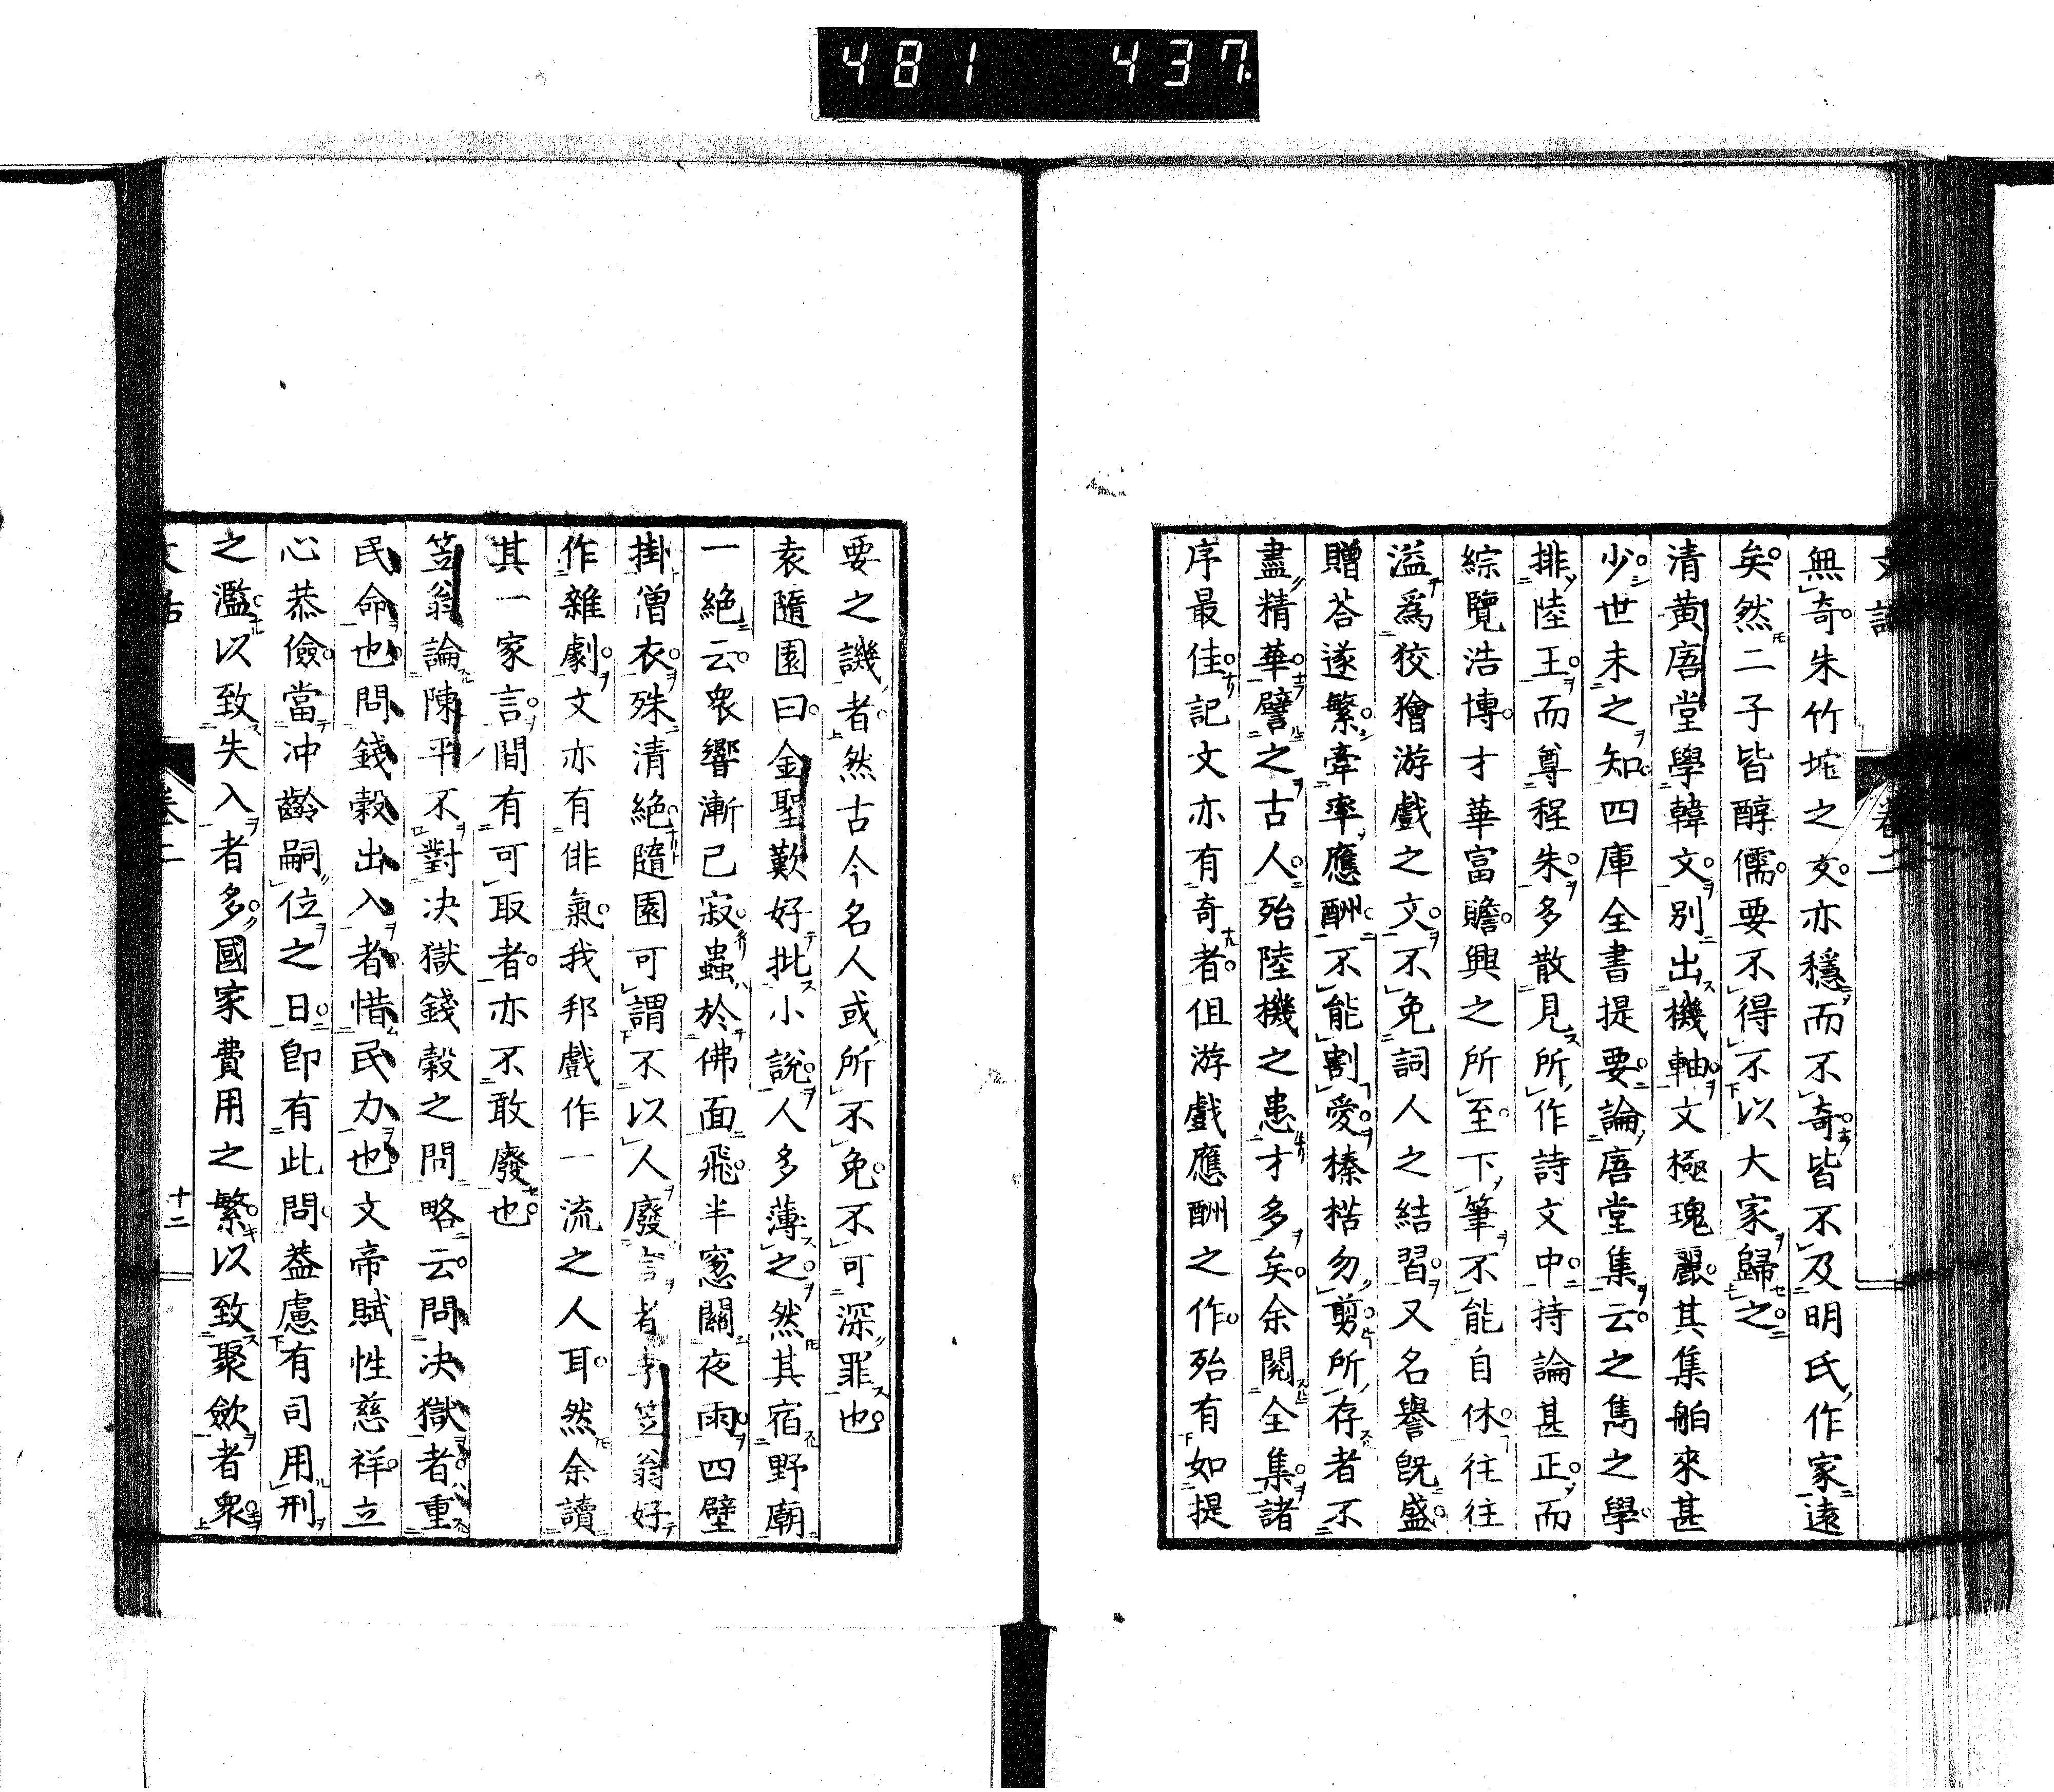 481 437
無奇朱竹垞之文亦穩而不奇皆不及明氏作家遠
矣然二子皆醇儒要不得不以大家歸之
清黄唐堂學韓文別出機軸文極瑰麗其集舶來甚
少世未之知四庫全書提要論唐堂集云之雋之學
排陸王而尊程朱多散見所作詩文中持論甚正而
綜覽浩博才華富贍興之所至下筆不能自休往往
溢爲狡獪游戲之文不免詞人之結習又名譽既盛
贈荅遂繁牽率應酬不能割愛榛楛勿剪所存者不
盡精華譬之古人殆陸機之患才多矣余閲全集諸
序最佳記文亦有奇者但游戲應酬之作殆有如提
要之譏者然古今名人或所不免不可深罪也
袁隨園曰金聖歎好批小說人多薄之然其宿野廟
一絶云衆響漸已寂蟲於佛面飛半窓關夜雨四壁
掛僧衣殊清絶隨園可謂不以人廢言者李笠翁好
作雜劇文亦有俳氣我邦戲作一流之人耳然余讀
其一家言間有可取者亦不敢廢也
笠翁論陳平不對决獄錢穀之問略云問决獄者重
民命也問錢穀出入者惜民力也文帝賦性慈祥立
心恭儉當冲齡嗣位之日卽有此問葢慮有司用刑
之濫以致失入者多國家費用之繁以致聚斂者衆
卷二
十二